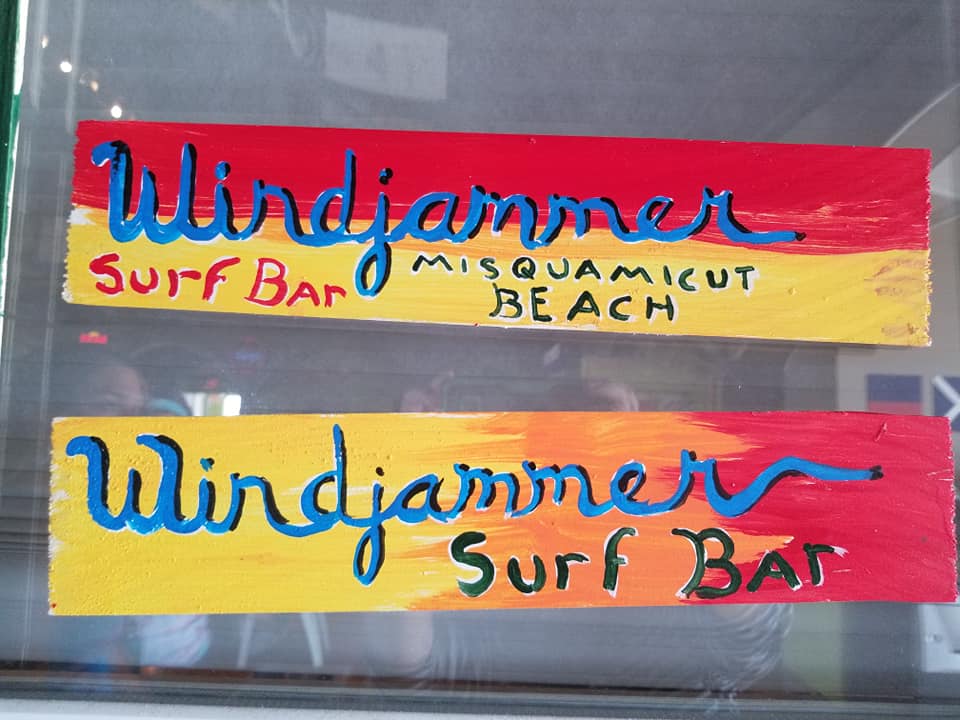 Windjammer
Surf Bar MISQUAMICUT
BEACH
Windjammer
Surf Bar